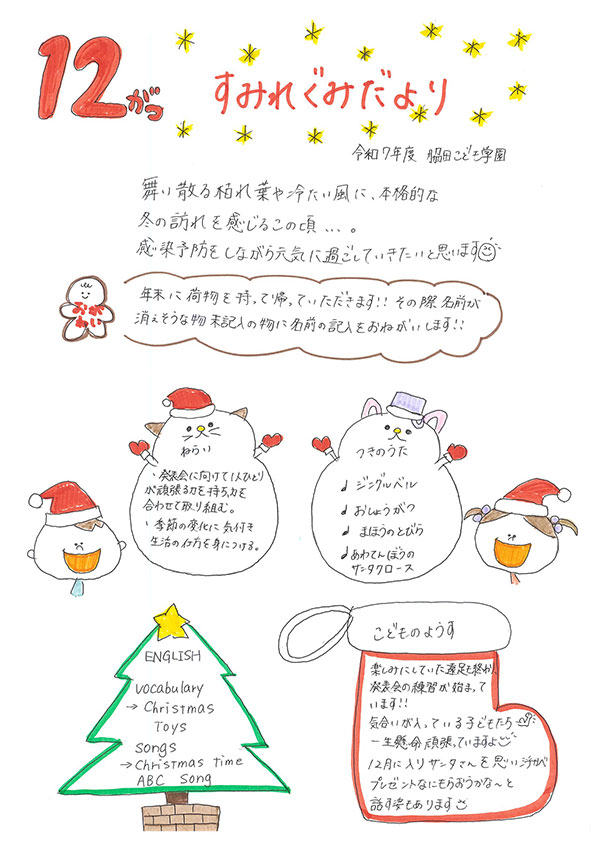 12がつ
すみれぐみだより
令和7年度 脇田こども学園
舞い散る枯れ葉や冷たい風に、本格的な
冬の訪れを感じるこの頃...。
感染予防をしながら元気に過ごしていきたいと思います
おねがい
年末に荷物を持って帰っていただきます!! その際名前が
消えそうな物 未記入の物に名前の記入をおねがいします!!
ねらい
・発表会に向けて1人ひとり
が頑張る力を持ち力を
合わせて取り組む。
・季節の変化に気付き
生活の仕方を身につける。
つきのうた
♩ ジングルベル
♩ おしょうがつ
♩ まほうのとびら
♩ あわてんぼうの
サンタクロース
ENGLISH
vocabulary
→ Christmas
Toys
songs
→ Christmas time
ABC Song
こどものようす
楽しみにしていた遠足も終わり、
発表会の練習が始まって
います!!
気合いが入っている子どもたち
一生懸命頑張っていますよ
12月に入りサンタさんを思い浮かべ
プレゼントなにもらおうかな〜と
話す姿もあります